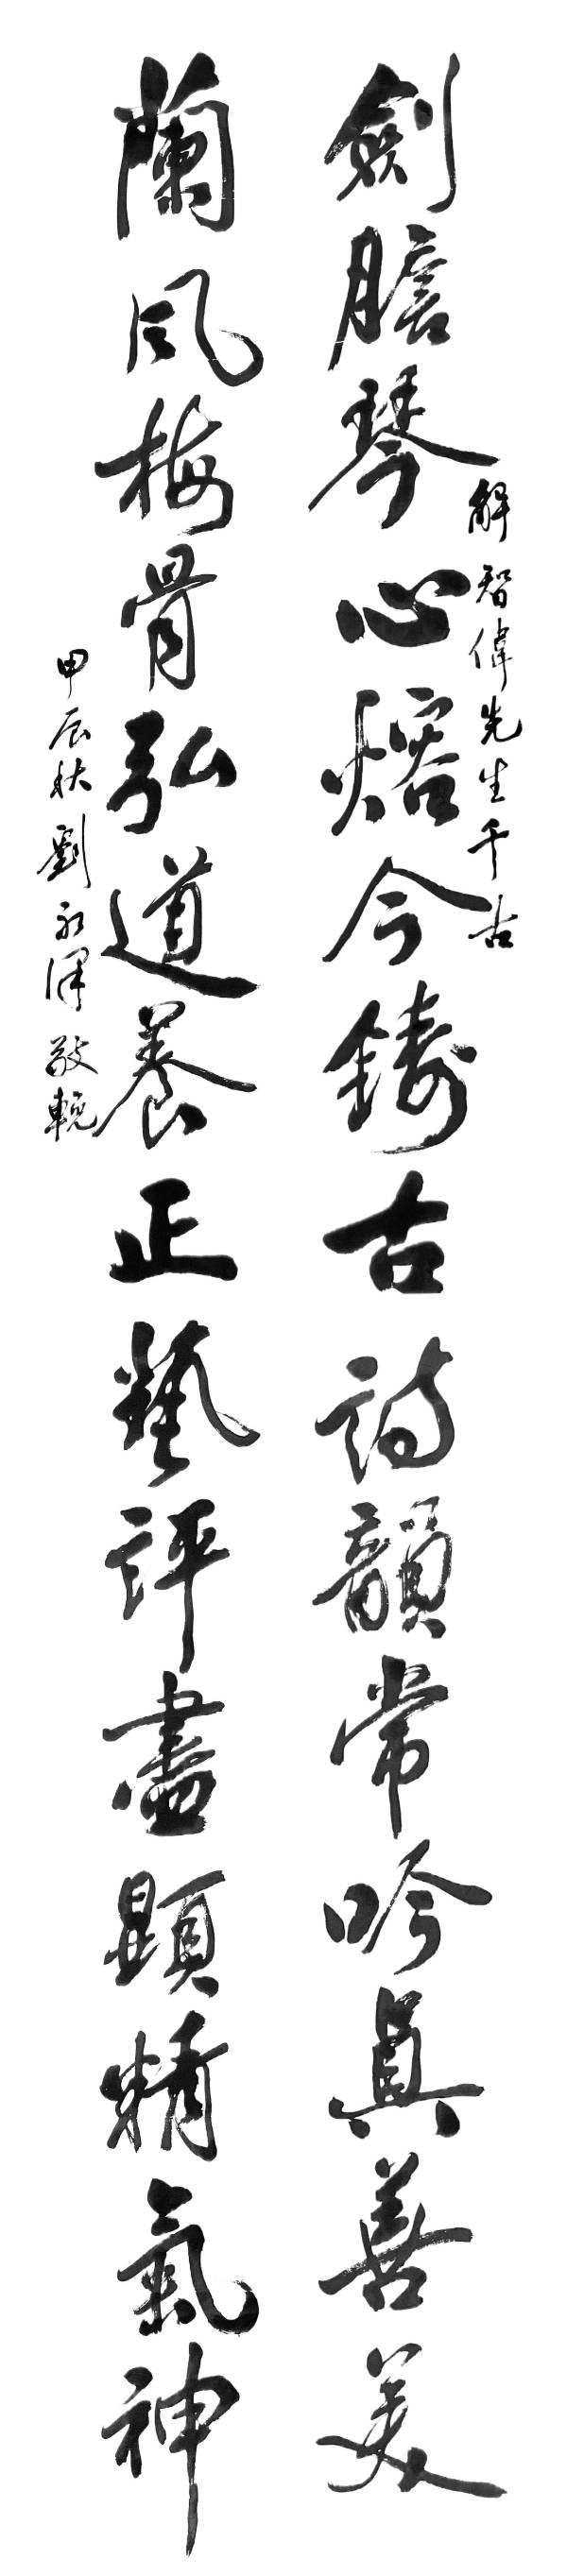 解智偉先生千古
劍膽琴心熔今鑄古詩韻常吟真善美
蘭風梅骨弘道養正藝評盡顯精氣神
甲辰秋劉永澤敬輓